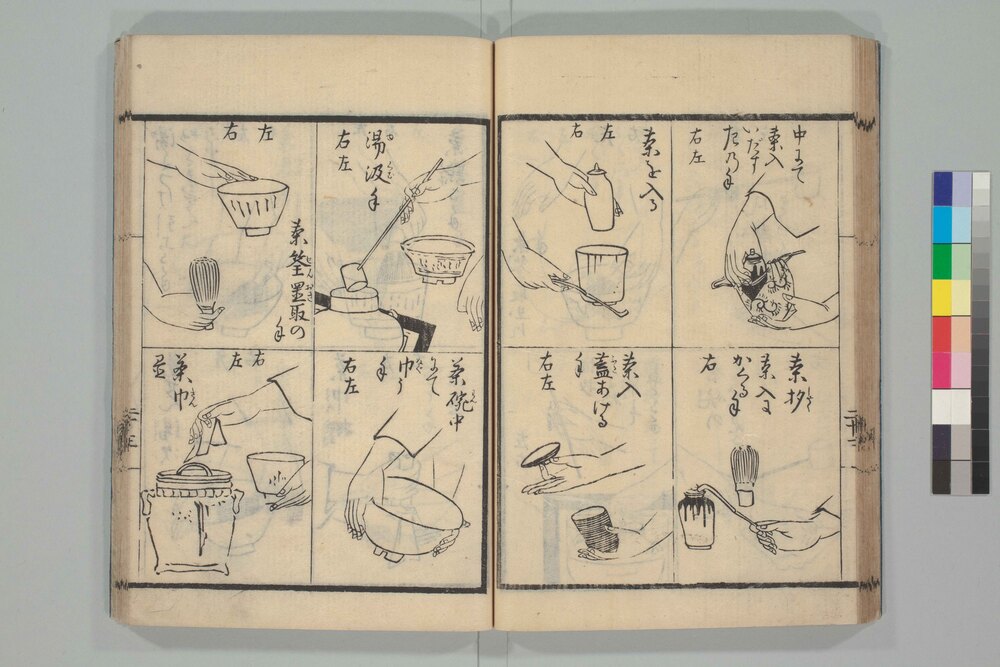 中にて
茶入
いだす
左の手
右左
茶杓
茶入に
かくる手
右
茶を入る
左
右
茶入
蓋あける
手
右左
湯汲手
右左
左
右
茶筌置取の
手
茶碗中
にて
手
右左
右
左
茶巾